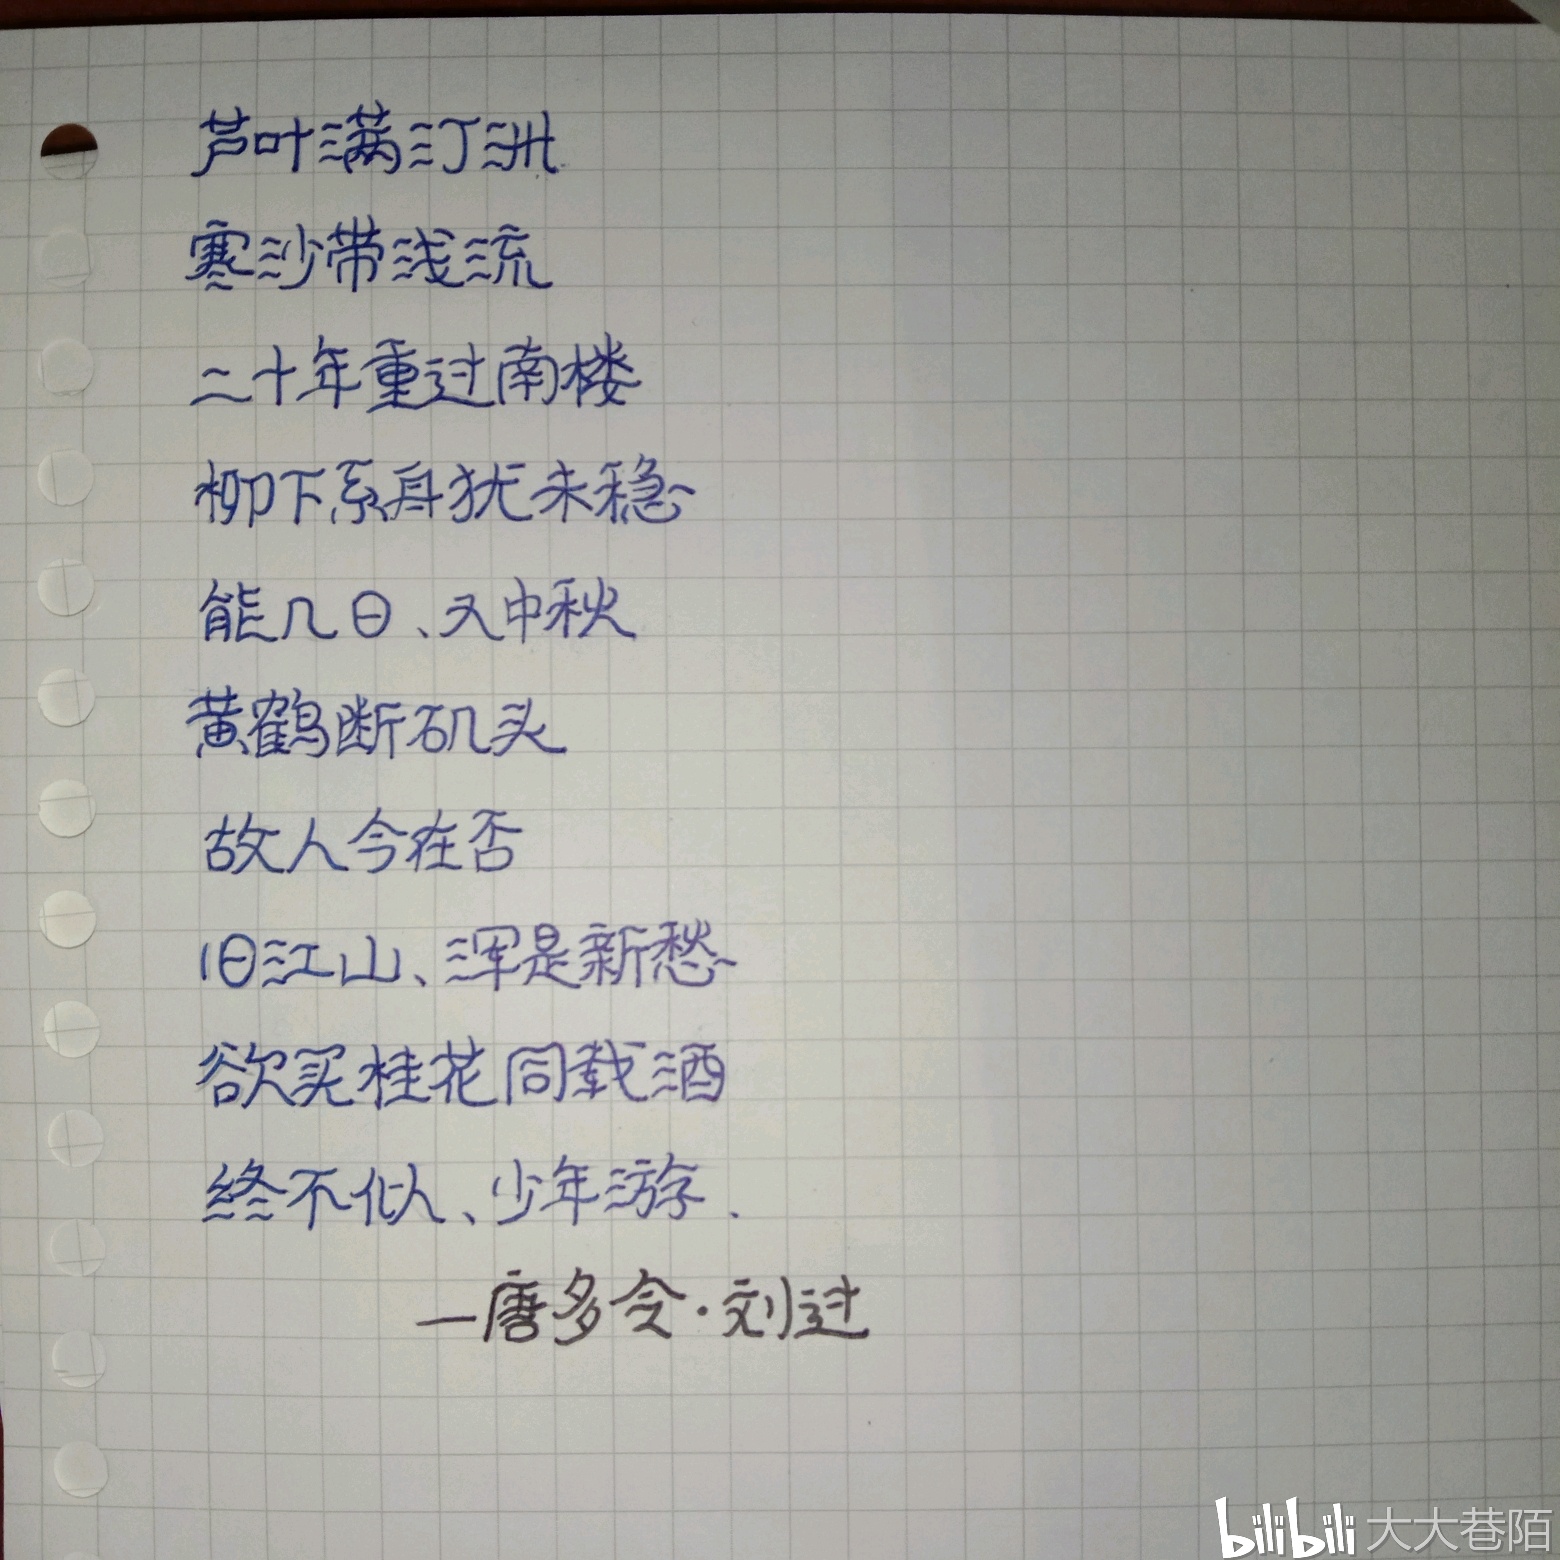 芦叶满汀洲
寒沙带浅流
二十年重过南楼
柳下系舟犹未稳
能几日、又中秋
黄鹤断矶头
故人今在否
旧江山、浑是新愁
欲买桂花同载酒
终不似、少年游.
—唐多令·刘过
bilibili 大大巷陌